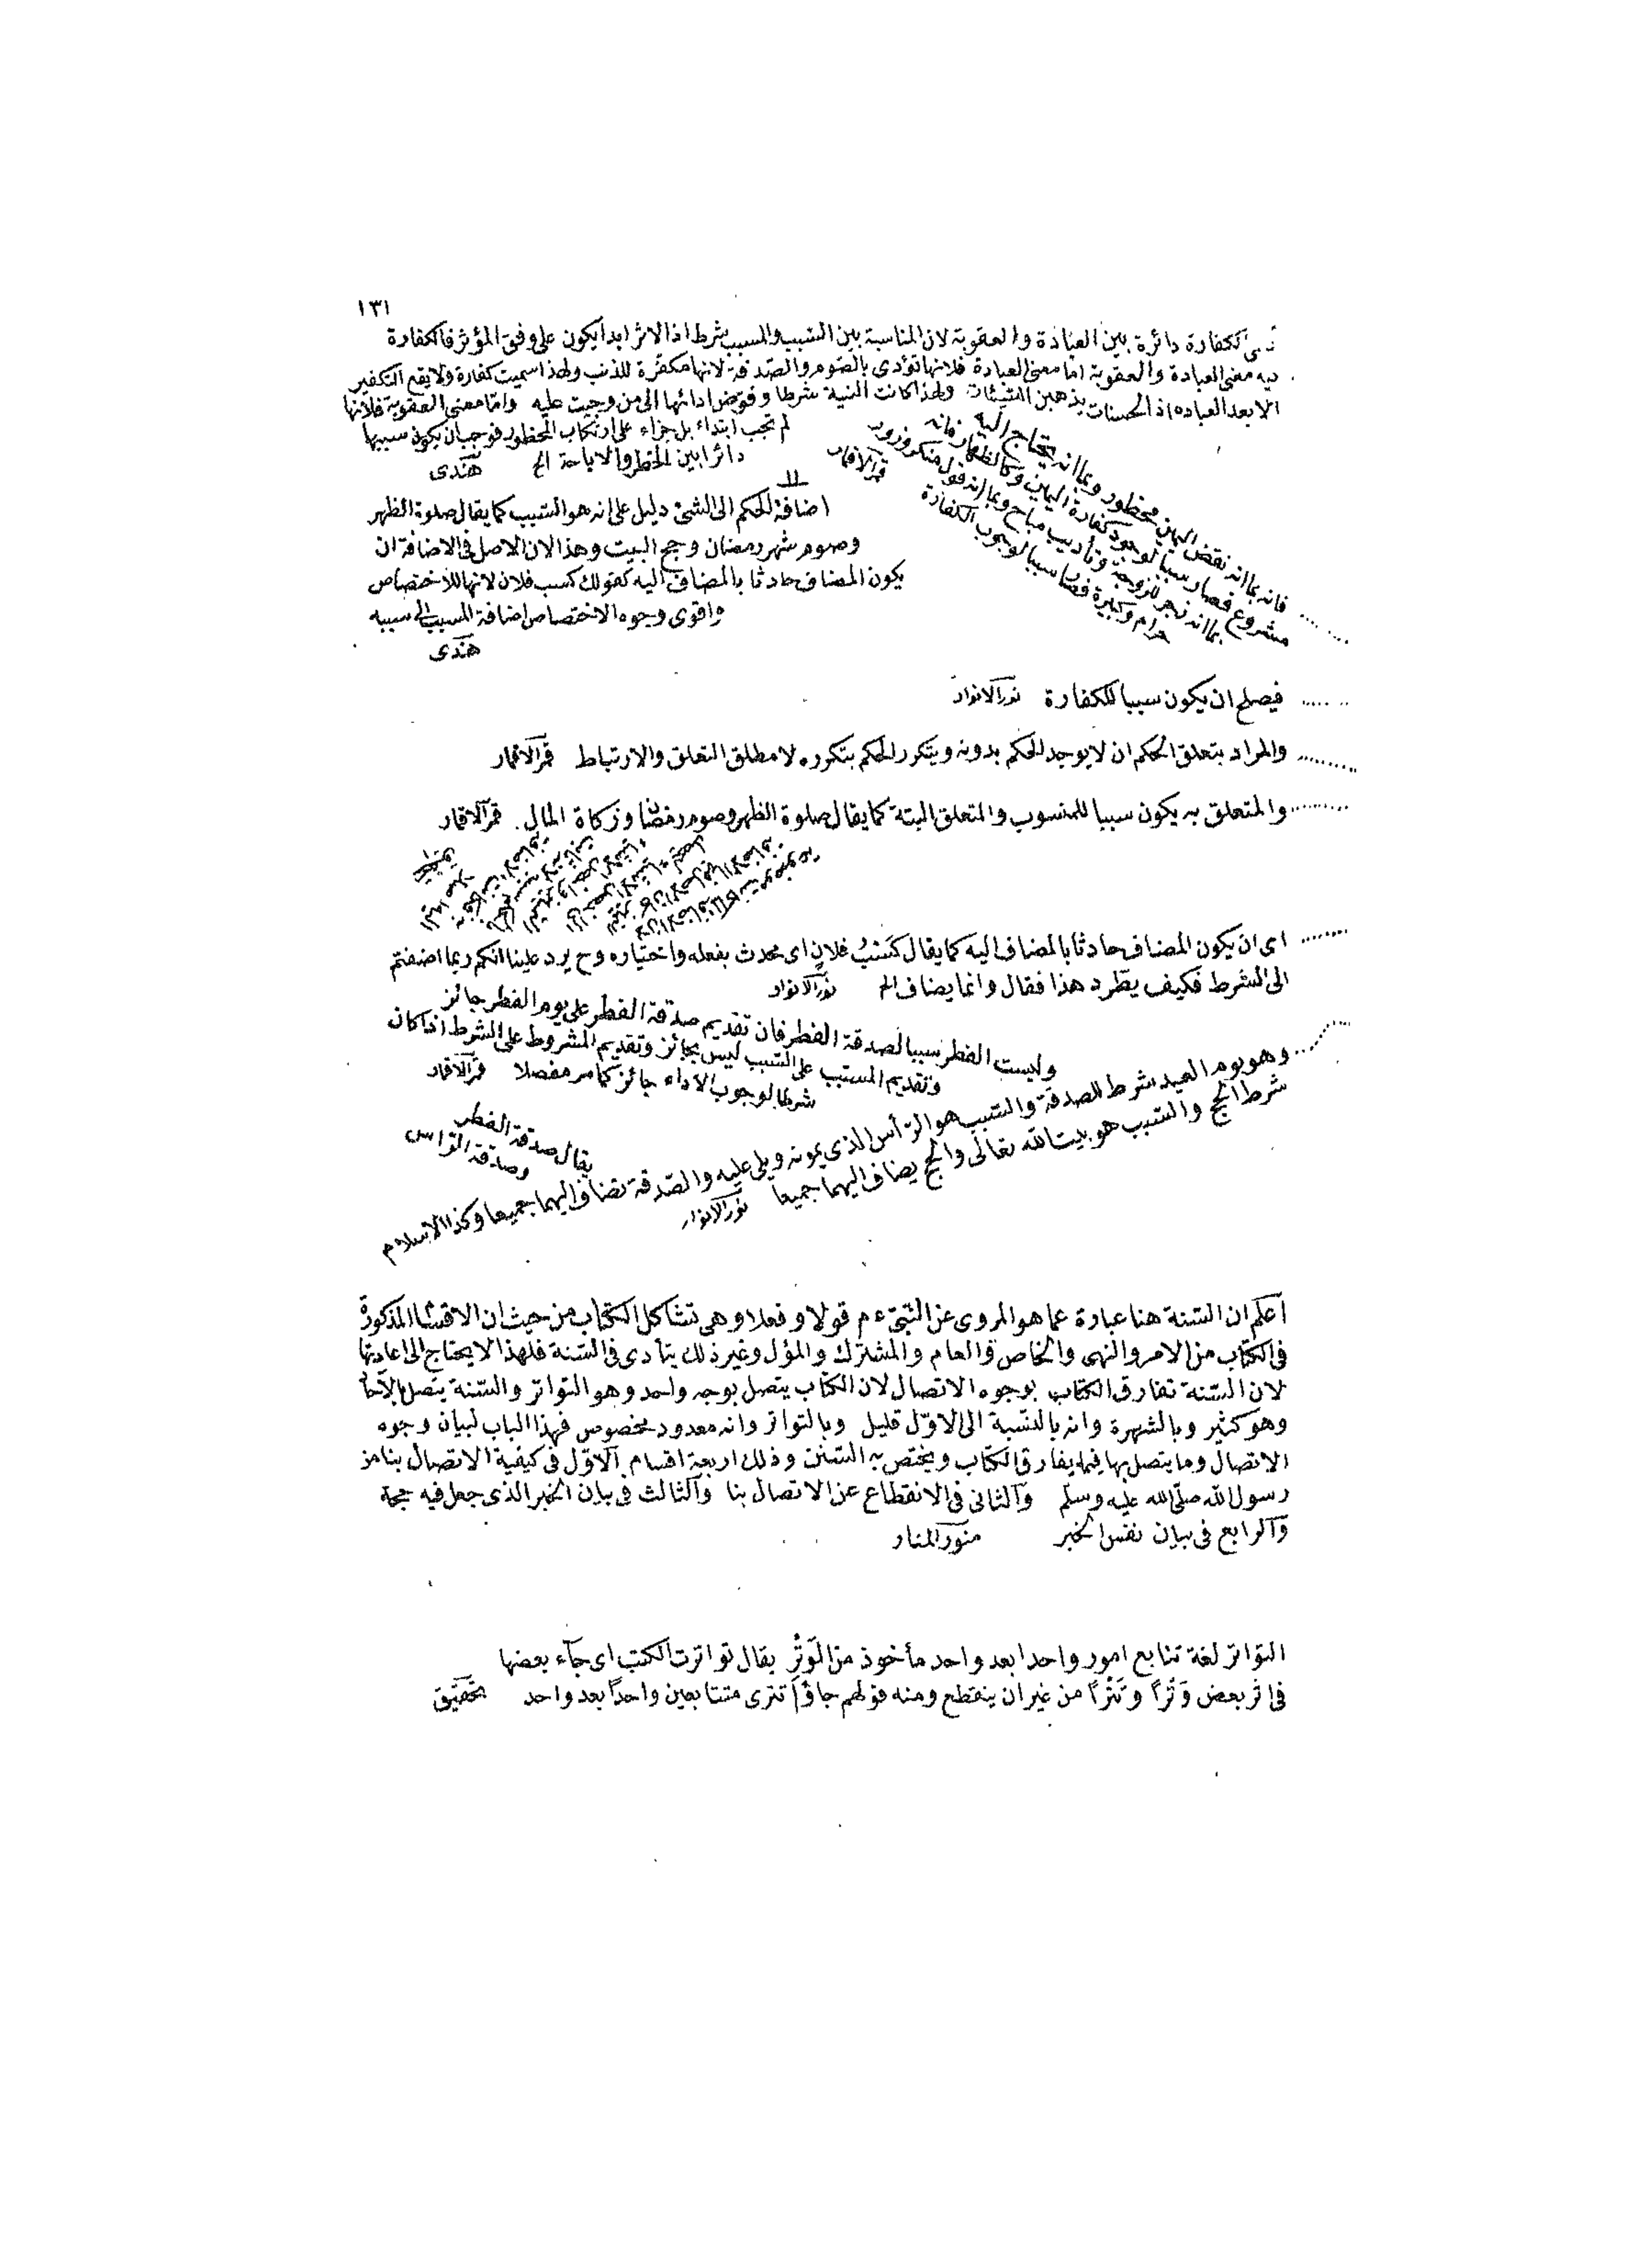 ١٣١
الكفارة دائرة بين العبادة والعقوبة لان المناسبة بين السبب والمسبب شرط اذ الاثر ابدا يكون على وفق المؤثر فالكفارة
فيه معنى العبادة والعقوبة اما معنى العبادة فلانها تؤدى بالصوم والصدقة لانها مكفرة للذنب ولهذا سميت كفارة ولا يقع التكفير
الا بعد العباده اذ الحسنات يذهبن السيئات ولهذا كانت النية شرطا وفوض ادائها الى من وجبت عليه واما معنى العقوبة فلانها
لم تجب ابتداء بل جزاء على ارتكاب المحظور فوجب ان يكون سببها
دائرا بين الحظر والاباحة الخ هندى
فانه بما انه نقض اليمين محظور وبما انه يحتاج اليه
مشروع فصار سببا لوجود كفارة اليمين وكالظهار فانه
بما انه زجر للزوجة وتأديب مباح وبما انه قول منكر وزور
حرام وكبيرة فصار سببا لوجوب الكفارة قمر الاقمار
اضافة الحكم الى الشئ دليل على انه هو السبب كما يقال صلوة الظهر
وصوم شهر رمضان وحج البيت وهذا لان الاصل فى الاضافة ان
يكون المضاف حادثا بالمضاف اليه كقولك كسب فلان لانها للاختصاص
واقوى وجوه الاختصاص اضافة المسبب الى سببه
هندى
فيصلح ان يكون سببا للكفارة نور الانوار
والمراد بتعلق الحكم ان لا يوجد الحكم بدونه ويتكرر الحكم بتكرره لا مطلق التعلق والارتباط قمر الاقمار
والمتعلق به يكون سببا للمنسوب والمتعلق البتة كما يقال صلوة الظهر وصوم رمضان وزكاة المال. قمر الاقمار
اى ان يكون المضاف حادثا بالمضاف اليه كما يقال كَسْبُ فلانٍ اى محدث بفعله واختياره وح يرد علينا انكم ربما اضفتم
الى الشرط فكيف يطّرد هذا فقال وانما يضاف الخ نور الانوار
وليست الفطر سببا لصدقة الفطر فان تقديم صدقة الفطر على يوم الفطر جائز
وتقديم المسبب على السبب ليس بجائز وتقديم المشروط على الشرط اذا كان
شرطا لوجوب الاداء جائز كما مر مفصلا قمر الاقمار
وهو يوم العيد شرط للصدقة والسبب هو الرأس الذى يمونه ويلى عليه والصدقة تضاف اليهما جميعا وكذا الاسلام
شرط الحج والسبب هو بيت الله تعالى والحج يضاف اليهما جميعا نور الانوار
يقال صدقة الفطر
وصدقة الراس
اعلم ان السنة هنا عبارة عما هو المروى عن النبىّ ءم قولا وفعلا وهى تشاكل الكتاب من حيث ان الاقسام المذكورة
فى الكتاب من الامر والنهى والخاص والعام والمشترك والمؤل وغير ذلك يتأدى فى السنة فلهذا لا يحتاج الى اعادتها
لان السنة تفارق الكتاب بوجوه الاتصال لان الكتاب يتصل بوجه واحد وهو التواتر والسنة يتصل بالآحاد
وهو كثير وبالشهرة وانه بالنسبة الى الاول قليل وبالتواتر وانه معدود مخصوص فهذا الباب لبيان وجوه
الاتصال وما يتصل بها فيما يفارق الكتاب ويختص به السنن وذلك اربعة اقسام الاول فى كيفية الاتصال بنا من
رسول الله صلى الله عليه وسلم والثانى فى الانقطاع عن الاتصال بنا والثالث فى بيان الخبر الذى جعل فيه حجة
والرابع فى بيان نفس الخبر منور المنار
التواتر لغة تتابع امور واحدا بعد واحد مأخوذ من الوَتْرِ يقال تواترت الكتب اى جآء بعضها
فى اثر بعض وَتْراً وتَتْراً من غير ان ينقطع ومنه قولهم جاؤا تترى متتابعين واحداً بعد واحد تحقيق